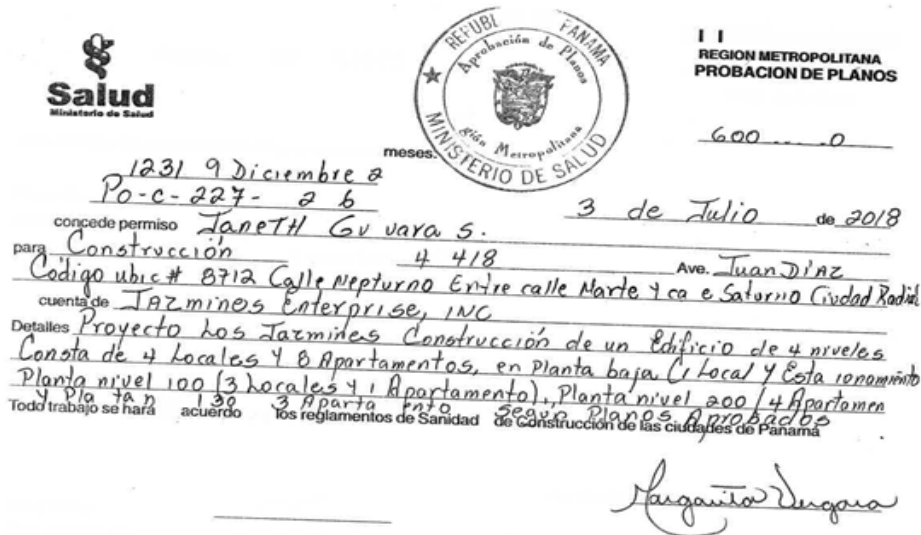 Salud
Ministerio de Salud
REPUBL PANAMA
Aprobación de Planos
gión Metropolitana
MINISTERIO DE SALUD
I I
REGION METROPOLITANA
PROBACION DE PLANOS
600 0
meses.
1231 9 Diciembre 2
Po-c-227- 2 6
3 de Julio de 2018
concede permiso JaneTH Gv vara S.
para Construcción 4 418 Ave. Juan DíAZ
Codigo ubic # 8712 Calle Nepturno Entre calle Marte y ca e Saturno Ciudad Radial
cuenta de JAZmines Enterprise, INC
Detalles Proyecto Los Jazmines Construcción de un Edificio de 4 niveles
Consta de 4 Locales y 8 Apartamentos, en Planta baja (1 Local y Esta ionamiento
Planta nivel 100 (3 Locales y 1 Apartamento), Planta nivel 200 (4 Apartamen
y Pla ta n 130 3 Aparta ento Segun Planos Aprobados
Todo trabajo se hará acuerdo los reglamentos de Sanidad de Construcción de las ciudades de Panamá
Margarita Vergara